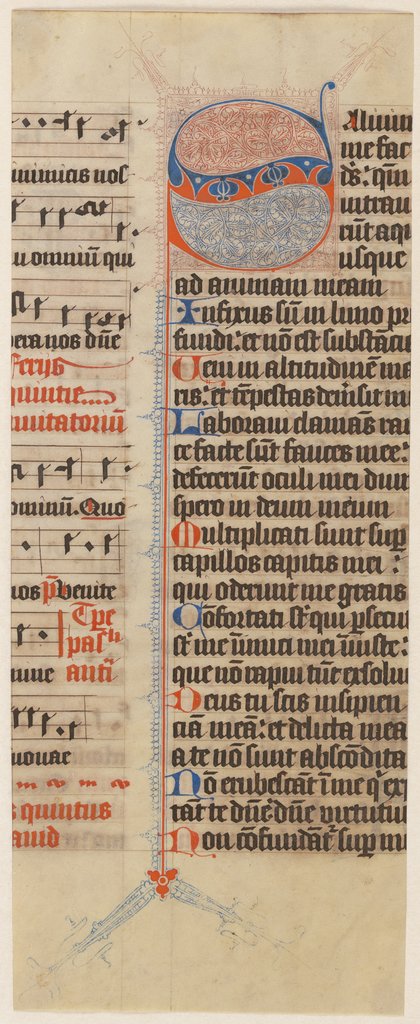 uimicis nos
u omniū qui
pera nos dn̄e
Feriis
quintis
inuitatoriū
ominū. Quo
nos ps Venite
Tpe
pasch
nune anti
uouae
s quintus
auid
Saluum
me fac
ds: qm̄
intrau
erūt aq
usque
ad animam meam
Infixus sū in limo pr
fundi: et nō est substācia
Veni in altitudinē ma
ris: et tēpestas demsit m
Laboraui clamās rau
ce facte sūt fauces mee:
defecerūt oculi mei dum
spero in deum meum
Multiplicati sunt sup
capillos capitis mei :
qui oderunt me gratis
Cōfortati st̄ qui psecu
st̄ me īimici mei iniuste:
que nō rapui tūc exsolu
Deus tu scis insipien
ciā meā: et delicta mea
a te nō sunt abscōdita
Nō erubescāt ī me q̄ ex
tāt te dn̄e: dn̄e virtutu
Non cōfundāt sup m